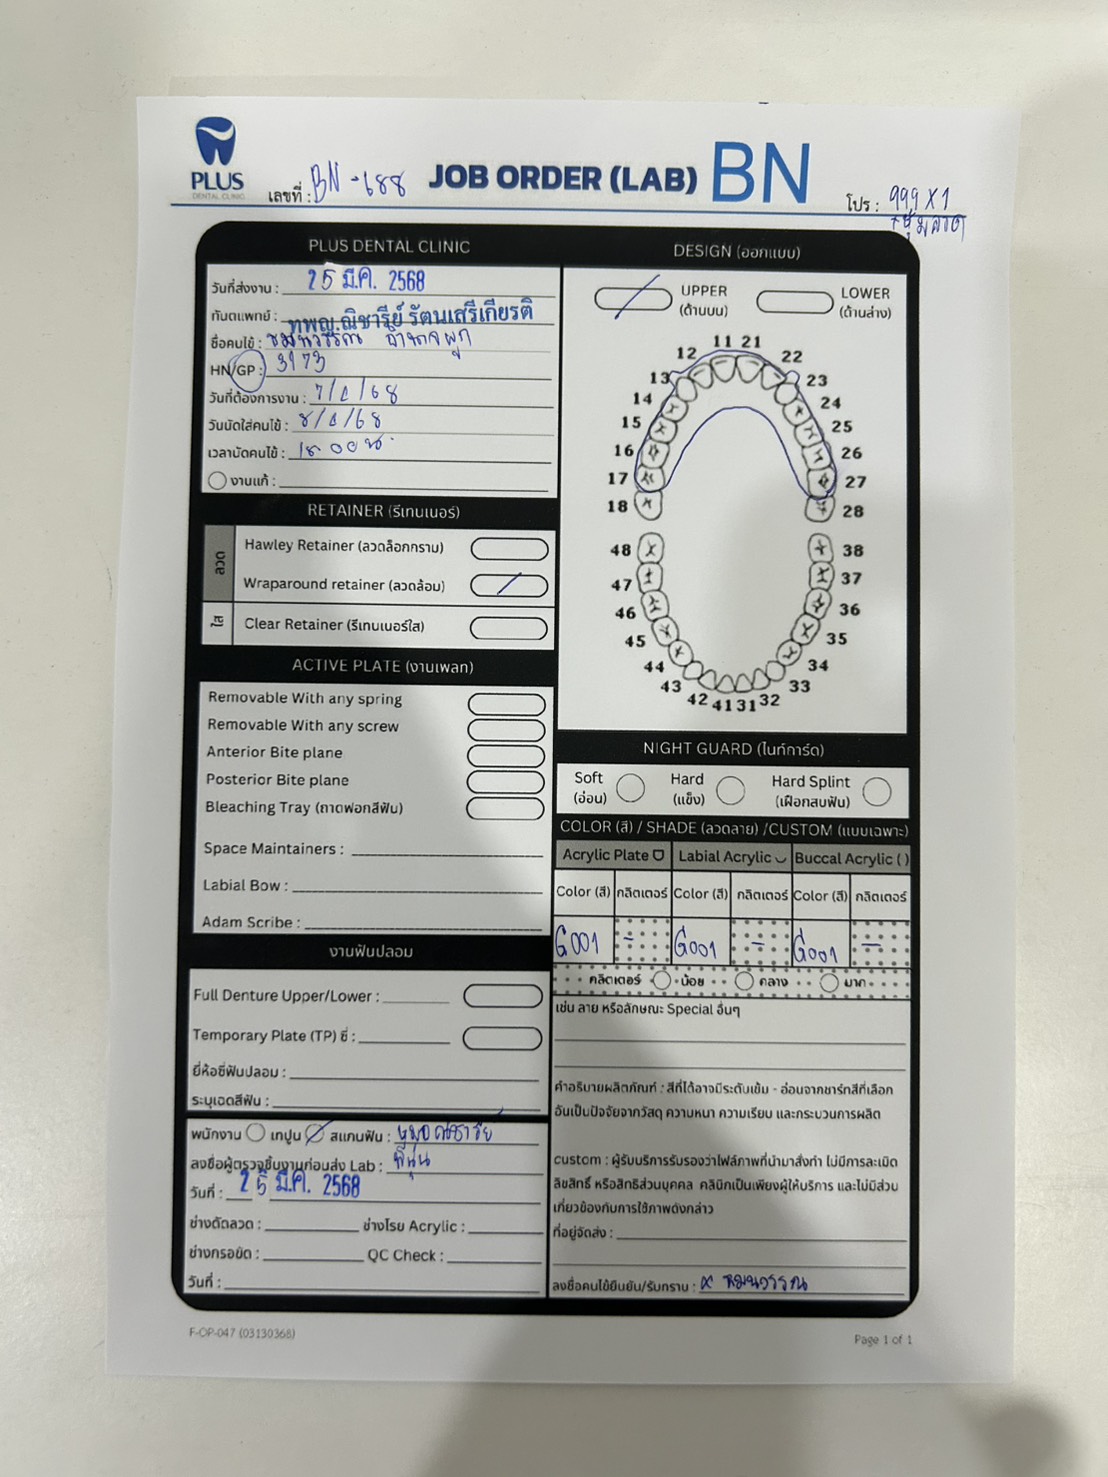 PLUS
DENTAL CLINIC
เลขที่ : BN-688
JOB ORDER (LAB) BN
โปร : 999 X 1
PLUS DENTAL CLINIC
วันที่ส่งงาน : 25 มี.ค. 2568
ทันตแพทย์ : ทพญ.ณิชารีย์ รัตนเสรีเกียรติ
ชื่อคนไข้ :
HN/GP : 3173
วันที่ต้องการงาน : 7/4/68
วันนัดใส่คนไข้ : 8/4/68
เวลานัดคนไข้ : 18.00 น.
งานแก้ :
RETAINER (รีเทนเนอร์)
ลวด
Hawley Retainer (ลวดล็อกกราม)
Wraparound retainer (ลวดล้อม)
ใส
Clear Retainer (รีเทนเนอร์ใส)
ACTIVE PLATE (งานเพลท)
Removable With any spring
Removable With any screw
Anterior Bite plane
Posterior Bite plane
Bleaching Tray (ถาดฟอกสีฟัน)
Space Maintainers :
Labial Bow :
Adam Scribe :
งานฟันปลอม
Full Denture Upper/Lower :
Temporary Plate (TP) ซี่ :
ยี่ห้อซี่ฟันปลอม :
ระบุเฉดสีฟัน :
พนักงาน เทปูน สแกนฟัน :
ลงชื่อผู้ตรวจชิ้นงานก่อนส่ง Lab :
วันที่ : 25 มี.ค. 2568
ช่างดัดลวด : ช่างโรย Acrylic :
ช่างกรอขัด : QC Check :
วันที่ :
DESIGN (ออกแบบ)
UPPER
(ด้านบน)
LOWER
(ด้านล่าง)
11 21
12 22
13 23
14 24
15 25
16 26
17 27
18 28
48 38
47 37
46 36
45 35
44 34
43 33
42 41 31 32
NIGHT GUARD (ไนท์การ์ด)
Soft
(อ่อน)
Hard
(แข็ง)
Hard Splint
(เฝือกสบฟัน)
COLOR (สี) / SHADE (ลวดลาย) /CUSTOM (แบบเฉพาะ)
Acrylic Plate Labial Acrylic Buccal Acrylic ( )
Color (สี) กลิตเตอร์ Color (สี) กลิตเตอร์ Color (สี) กลิตเตอร์
G001 - G001 - G001 -
กลิตเตอร์ น้อย กลาง มาก
เช่น ลาย หรือลักษณะ Special อื่นๆ
คำอธิบายผลิตภัณฑ์ : สีที่ได้อาจมีระดับเข้ม - อ่อนจากชาร์ทสีที่เลือก
อันเป็นปัจจัยจากวัสดุ ความหนา ความเรียบ และกระบวนการผลิต
custom : ผู้รับบริการรับรองว่าไฟล์ภาพที่นำมาสั่งทำ ไม่มีการละเมิด
ลิขสิทธิ์ หรือสิทธิส่วนบุคคล คลินิกเป็นเพียงผู้ให้บริการ และไม่มีส่วน
เกี่ยวข้องกับการใช้ภาพดังกล่าว
ที่อยู่จัดส่ง :
ลงชื่อคนไข้ยืนยัน/รับทราบ : x
F-OP-047 (03130368)
Page 1 of 1